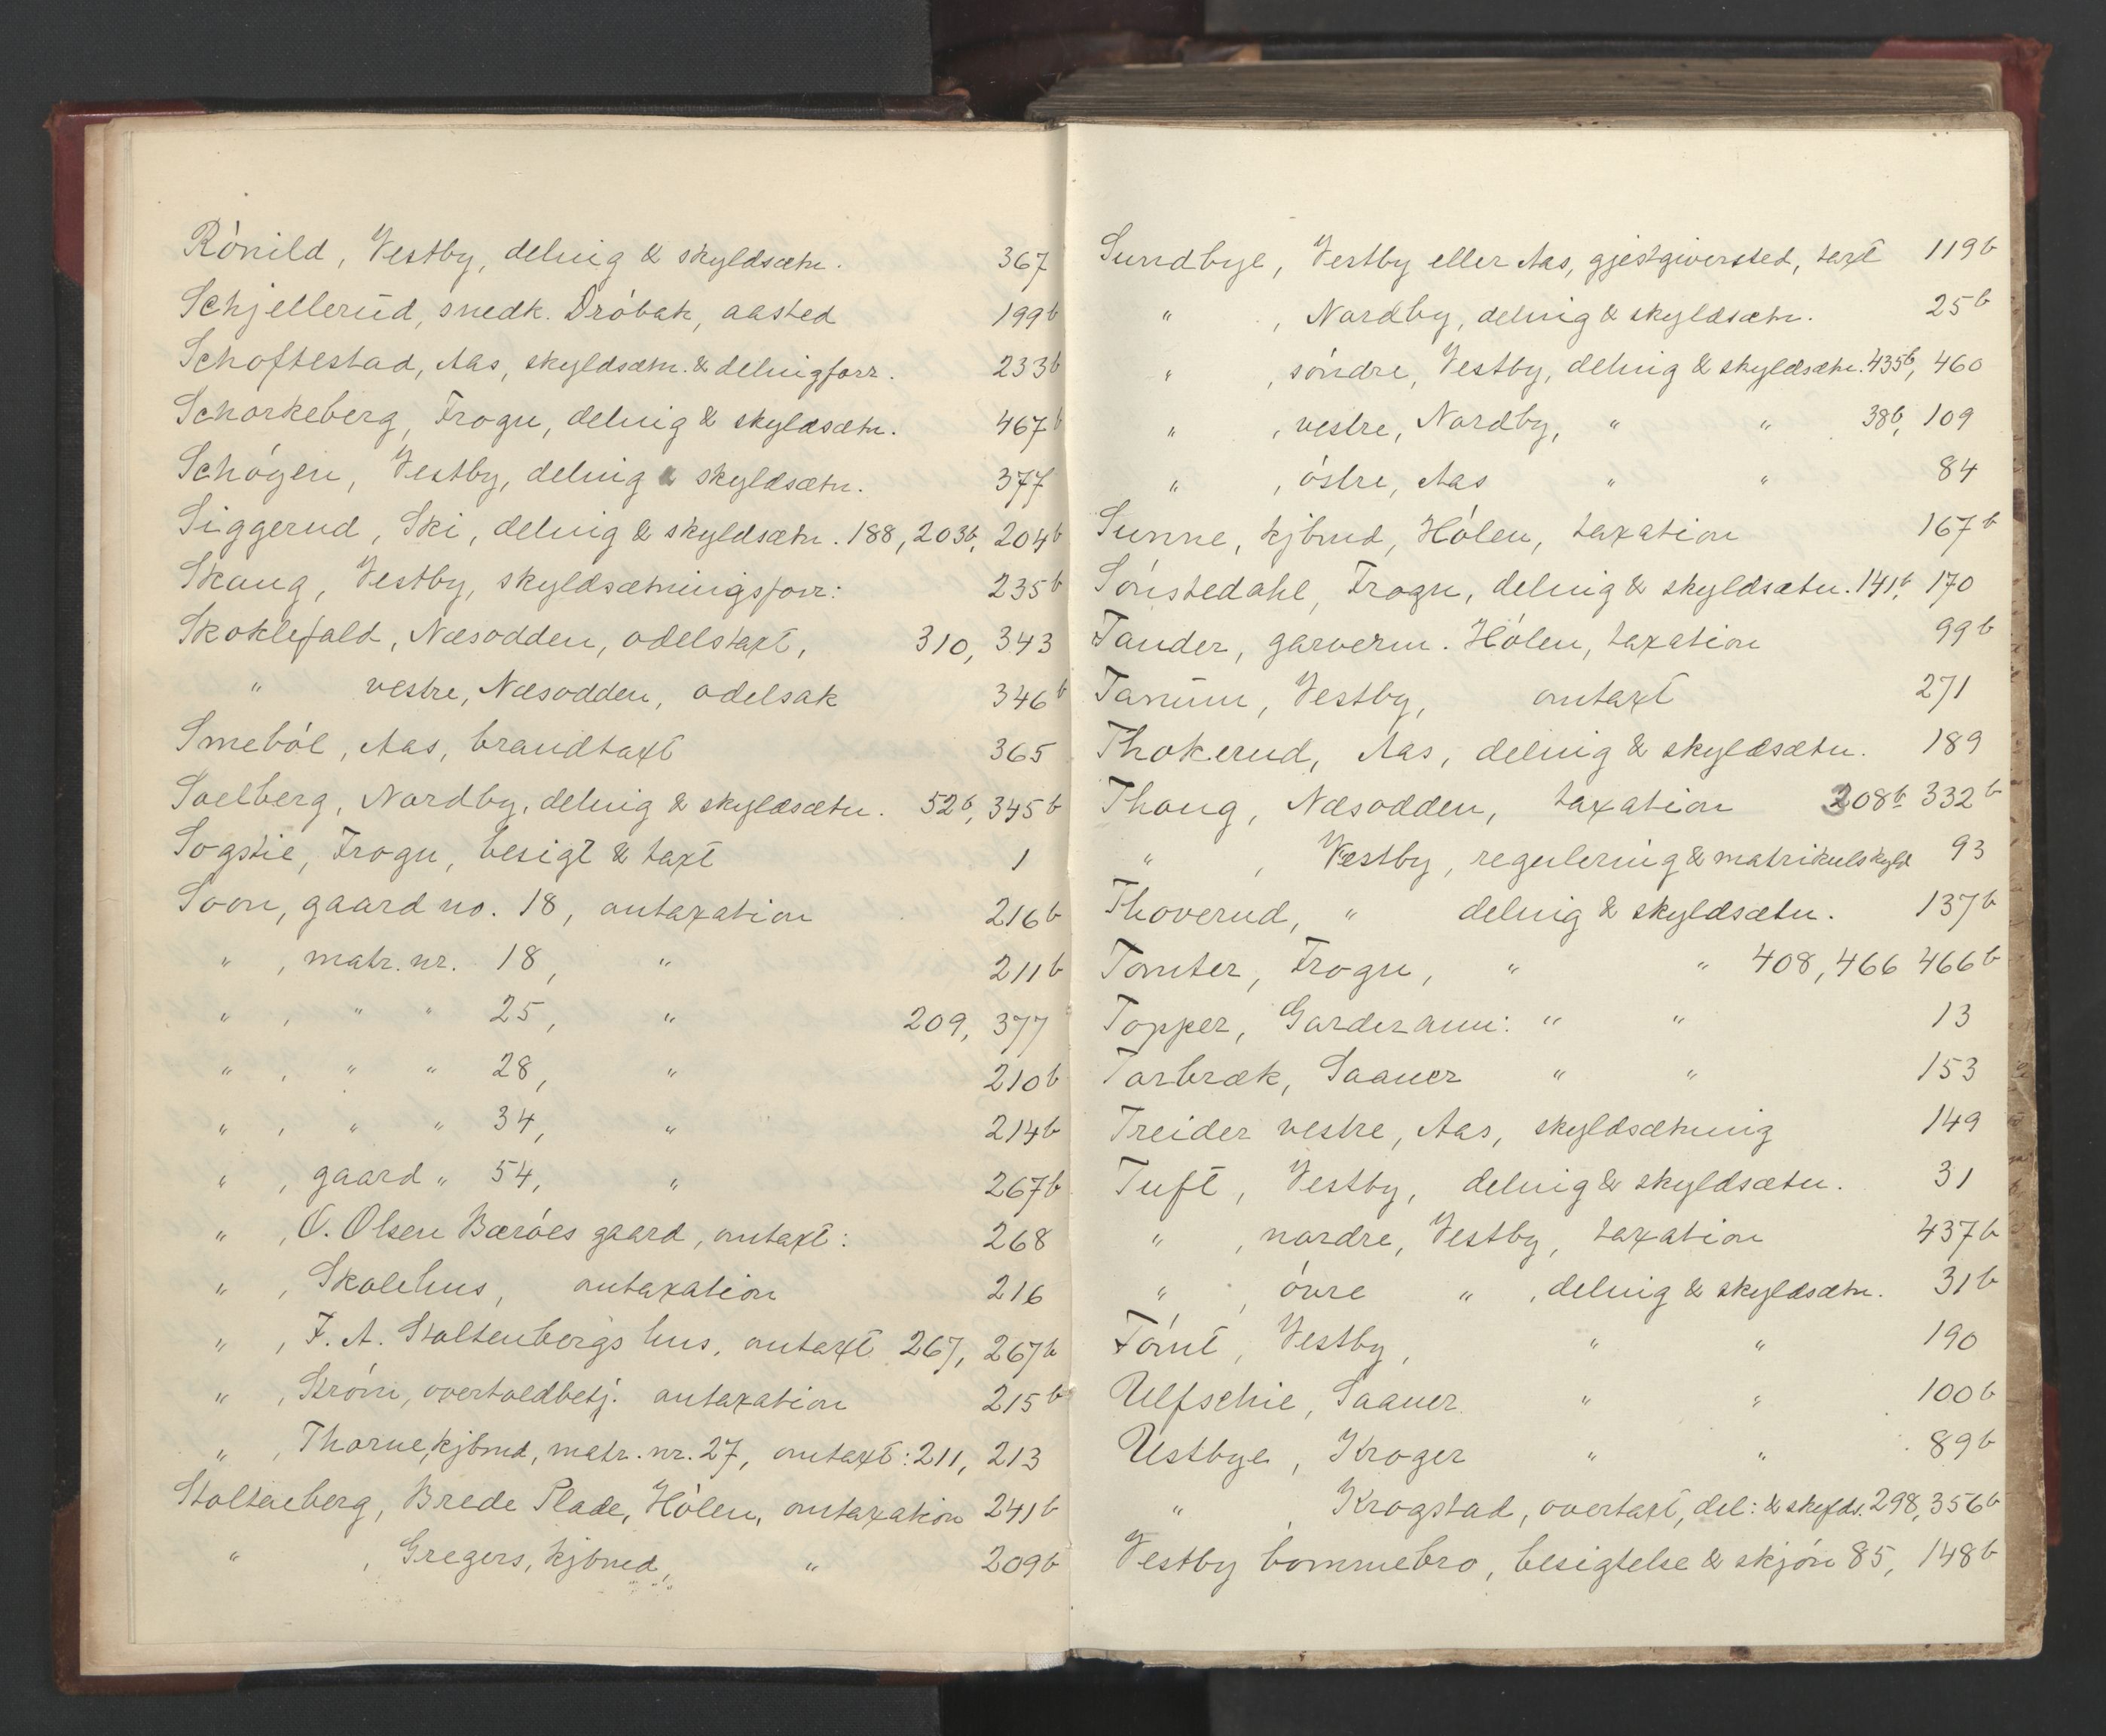 Rónild, Vestby, delnig & skyldsætn. 367
Schjellerud, snedk. Dróbak, aasted 199b
Schoftestad, Aas, skyldsætn. & delnigforr. 233b
Schorkeberg, Frogn, delnig & skyldsætn. 467b
Schógen, Vestby, delnig & skyldsætn. 377
Siggerud, Ski, delnig & skyldsætn. 188, 203b, 204b
Skaug, Vestby, skyldsætningsforr: 235b
Skoklefald, Næsodden, odelstaxt, 310, 343
" vestre, Næsodden, odelsak 346b
Smeból, Aas, brandtaxt 365
Soelberg, Nordby, delnig & skyldsætn. 52b, 345b
Sogstie, Frogn, besigt & taxt 1
Soon, gaard no. 18, omtaxation 216b
" , matr. nr. 18, " 211b
" , " " 25, " 209, 377
" , " " 28, " 210b
" , " " 34, " 214b
" , gaard " 54, " 267b
" , O. Olsen Bæróes gaard, omtaxt: 268
" , Skolehus, omtaxation 216
" , F. A. Stoltenbergs hus, omtaxt 267, 267b
" , Stróm, overtoldbetj. omtaxation 215b
" , Thorne, kjbmd, matr. nr. 27, omtaxt: 211, 213
Stoltenberg, Brede Plade, Hólen, omtaxation 241b
" , Gregers, kjbmd, " 209b
Sundbye, Vestby eller Aas, gjestgiversted, taxt 119b
" , Nordby, delnig & skyldsætn. 25b
" , sóndre, Vestby, delnig & skyldsætn. 435b, 460
" , vestre, Nordby, " " 38b, 109
" , óstre, Aas " " 84
Sunne, kjbmd, Hólen, taxation 167b
Sónstedahl, Frogn, delnig & skyldsætn. 141b, 170
Tander, garverm. Hólen, taxation 99b
Tanum, Vestby, omtaxt 271
Thokerud, Aas, delnig & skyldsætn. 189
Thoug, Næsodden, taxation 208b 332b
" , Vestby, regulering & matrikulskyld 93
Thoverud, " delnig & skyldsætn. 137b
Tomter, Frogn, " " 408, 466 466b
Topper, Garder ann: " " 13
Torbræk, Saaner " " 153
Treider vestre, Aas, skyldsætning 149
Tuft, Vestby, delnig & skyldsætn. 31
" , nordre, Vestby, taxation 437b
" , óvre " , delnig & skyldsætn. 31b
Tómt, Vestby, " " 190
Ulfschie, Saaner " " 100b
Ustbye, Kroger " " 89b
" , Krogstad, overtaxt, del: & skylds. 298, 356b
Vestby bommebro, besigtelse & skjón 85, 148b